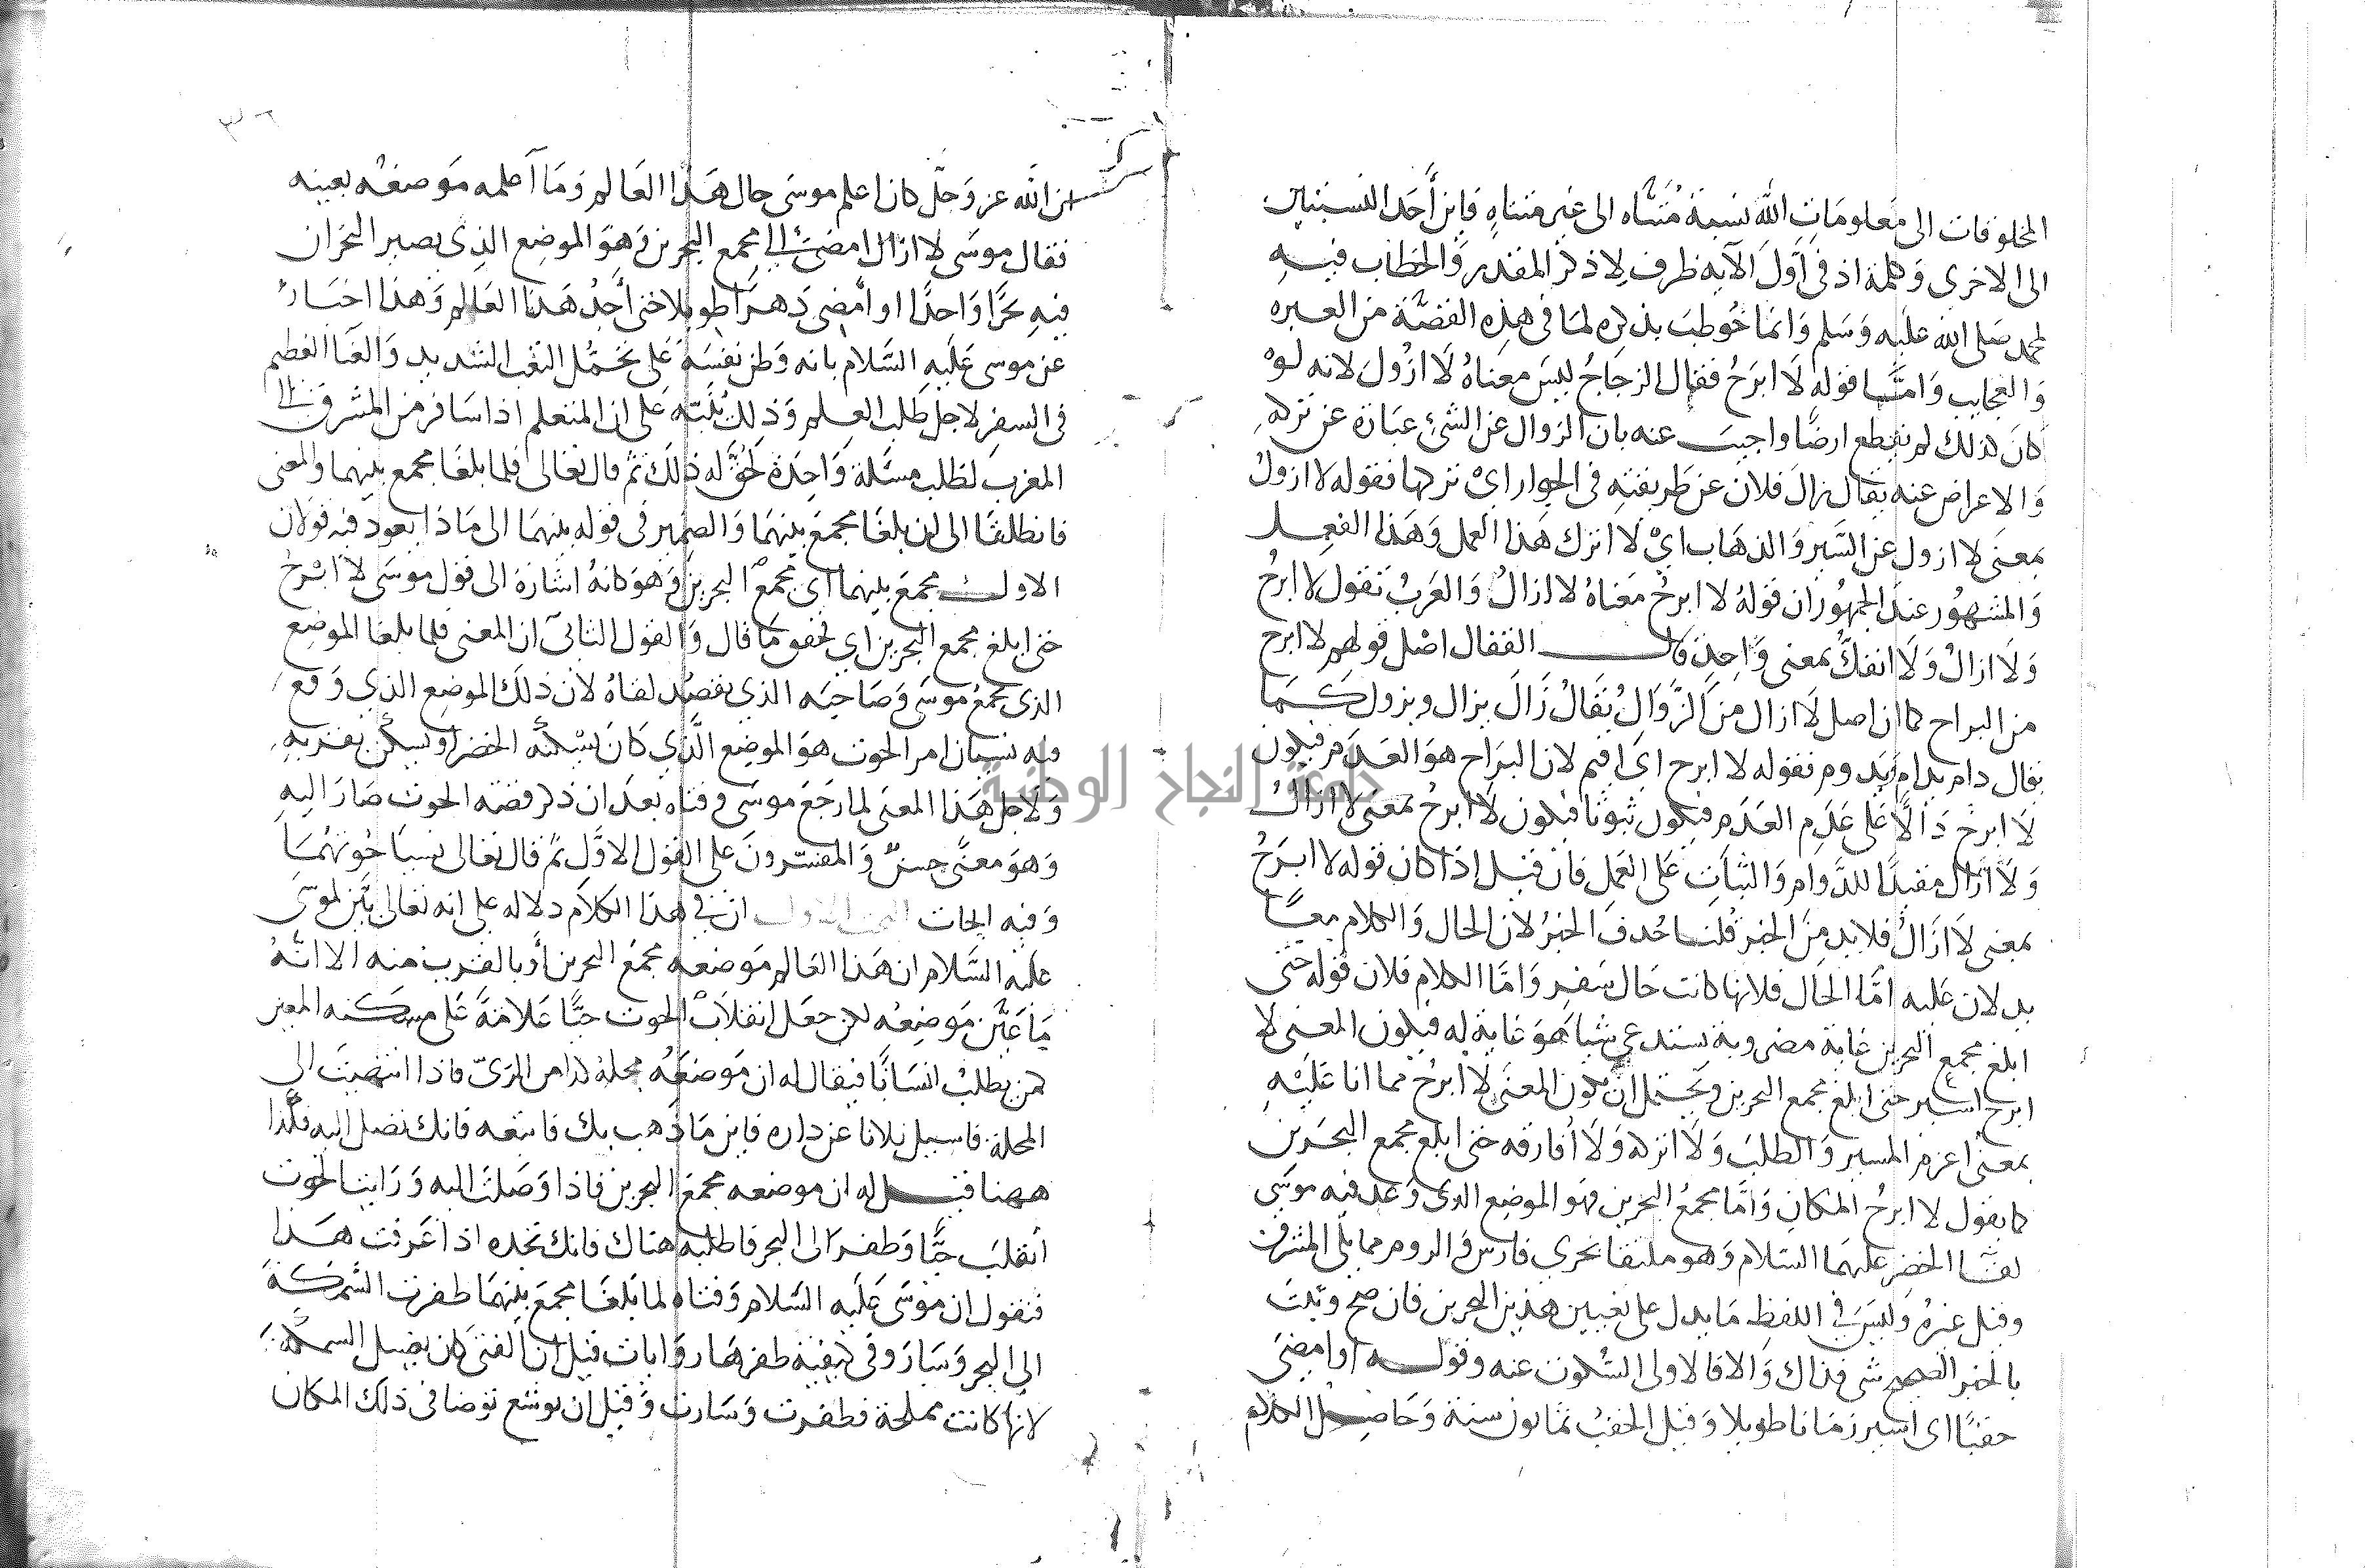 المخلوقات الى معلومات الله نسبة مُتناه الى غير متناهٍ فاين أحد النسبتين
الى الاخرى وَكلمة اذ فى أوّل الآيه ظرف لِاذكر المقدر وَالخطاب فيه
لمحمد صَلى الله عليه وَسَلم وَانما خُوطبَ بذكره لما فى هذِه القصَّة من العبره
وَالعجايب وَامَّا قوله لَا ابرَحُ فقال الزجاجُ ليسَ معنَاهُ لَا ازُولَ لانه لوْ
كانَ كذلك لم يقطع ارضًا واجيبَ عنه بان الزوال عن الشئِ عبَارة عن تركهِ
وَالاعراض عنه يقال زالَ فلان عن طريقتِهِ فى الجوار اىْ تركها فقوله لا ازولُ
بمعنَى لا ازول عن السَّير وَالذهاب ايْ لَا اترك هَذا العمل وَهَذا الفعل
وَالمشهُور عند الجمهُور ان قولهُ لا ابرحُ مَعناهُ لا ازالُ وَالعَربُ تَقول لا ابرحُ
وَلَا ازالُ وَلَا انفكُّ بمعنى وَاحِدٍ قال القفال اصْل قولهم لا ابرح
من البراح كما ان اصل لَا ازال منَ الزَّوَالُ يُقَالُ زَالَ يزال ويزول كَمَا
يقال دام يدام وَيدوم فقوله لا ابرح اى اقيم لان البرَاح هوَ العَدَم فيكون
لَا ابرحُ دَالًّا عَلى عَدَمِ العَدَم فيكون ثبوتًا فيكون لَا ابرحُ بمعنَى لا ازالُ
وَلَا ازَال مفيدًا للدَّوام وَالثبَاتِ عَلى العَمل فانْ قيل اذَا كان قوله لا ابرَحُ
بمعنى لَا ازَالُ فلابد مِنَ الخبر قُلنا حُذفَ الخبرُ لان الحال وَالكلام معًا
يدلان عَليه امَّا الحَال فلانها كانت حَال سَفر وَامَّا الكلام فلان قوله حَتى
ابلغ مجمع البحرين غاية مضروبة تستدعى شيئا هوَ غاية له فيكون المعنى لا
ابرح اسير حتى ابلغ مجمع البحرين وَيحتمل ان يكون المعنَى لَا ابرحُ مما انا عَليْهِ
بمعنى اعزم المسير وَالطلبَ وَلَا اتركه وَلَا اُفارقه حتى ابلغ مجمع البحَرين
كما يقول لا ابرحُ المكان وَامَّا مجمعُ البحرين فهو الموضِع الذى وَعد فيه موسَى
لقا الخضر عليهما السَلام وَهو ملتقا بحرى فارس وَالروم مما يلى المشرق
وقيل غيرُه وَليسَ فى اللفظِ مَا يدل على تعيين هَذين البحرين فان صح وثبتَ
بالخبر الصحيح شى فذاك وَالا فالاولى السُّكوت عنه وقوله او امضىَ
حقبًا اى اسير زمَانا طويلا وَقيل الحقبُ ثمانون سنة وَحَاصِل الكلام
ان الله عز وَجَّل كان اعلم موسَى حال هَذا العَالم وَمَا أعلمه مَوضعَه بعينه
فقال موسَى لا ازال امضى الى مجمع البحرين وَهوَ الموضِع الذِي يصير البحَران
فيهِ بحرًا وَاحدًا او امْضى دَهرًا طويلا حتى أجِدُ هَذا العَالم وَهَذا اخبَارُ
عن موسى عَليهِ السَّلام بانه وَطن نفسَهُ عَلى تحمُّل التعب الشديد وَالعنا العظيم
فى السفرِ لاجل طَلب العِلم وَذلكَ يُنَبِّه عَلى ان المتعلم اذا سَافر من المشرق الى
المغرب لطلبِ مسَئلة وَاحِدة لحُقَّ له ذلكَ ثمّ قال تعَالى فلما بلغَا مجمع بينهما والمعنى
فانطلقَا الى ان بلغَا مجمعَ بينهمَا وَالضمِير فى قوله بينهما الى مَاذا يعود فيه قولان
الاول مجمعَ بينهما اى مجمع البحرين وَهوَ كانهُ اشارة الى قول موسَى لا ابْرحُ
حتى ابلغ مجمع البحرين اي تحقق مَا قال وَالقول الثانى ان المعنى فلما بلغا الموضِع
الذى مجمعُ موسَى وَصَاحبَه الذى يقصُد لقاهُ لان ذلكَ الموضِع الذي وَقعَ
فيه نسيان امر الحوت هوَ الموضِع الَّذي كانَ يسْكنهُ الخضر او يَسكن بقربهِ
وَلاجل هَذا المعنى لما رجَعَ موسَى وَفتاه بعدَ ان ذكر قصَّة الحوت صَارَ اليهِ
وَهوَ معنًى حسنٌ وَالمفسّرونَ على القول الاوَّل ثمّ قال تعَالى نسيَا حُوتهُمَا
وَفيه ابحاث البحث الاول ان فى هَذا الكلَام دلاله على انه تعَالى بَيَّن لموسَى
عليه السَّلام ان هَذا العَالم مَوضعه مجمَع البحرين أو بالقرب منه الا انَّهُ
مَا عَيَّن مَوضِعُه لكن جعَل انقلابَ الحوت حيًّا عَلامَةً عَلى مسكَنه المعين
كمن يطلبُ انسَانًا فيقال له ان مَوضعَهُ محلة كذا من الرَىّ فاذا انتهيتَ الى
المحلة فاسيل فلانا عن داره فاين مَا ذهب بك فاتبعه فانك تصل اليه فكذا
ههنا قيل له ان موضعه مجمعَ البحرين فاذا وَصَلتَ اليه وَرَايتَ الحوت
انقلبَ حيًّا وَطفرَ الى البحر فاطلبه هناك فانك تجده اذا عَرفت هَذا
فنقول ان موُسَى عَليه السَّلام وَفتاه لما بَلغَا مجمَع بينهمَا طفرت السَّمَكَة
الى البحر وَسَارَ وفى كيفية طفرهَا روَايات قيل ان الفتَى كان يغسل السمكة
لانها كانت مملحة فطفرت وَسَارت وَقيل ان يوشع توضا فى ذلكَ المكَان